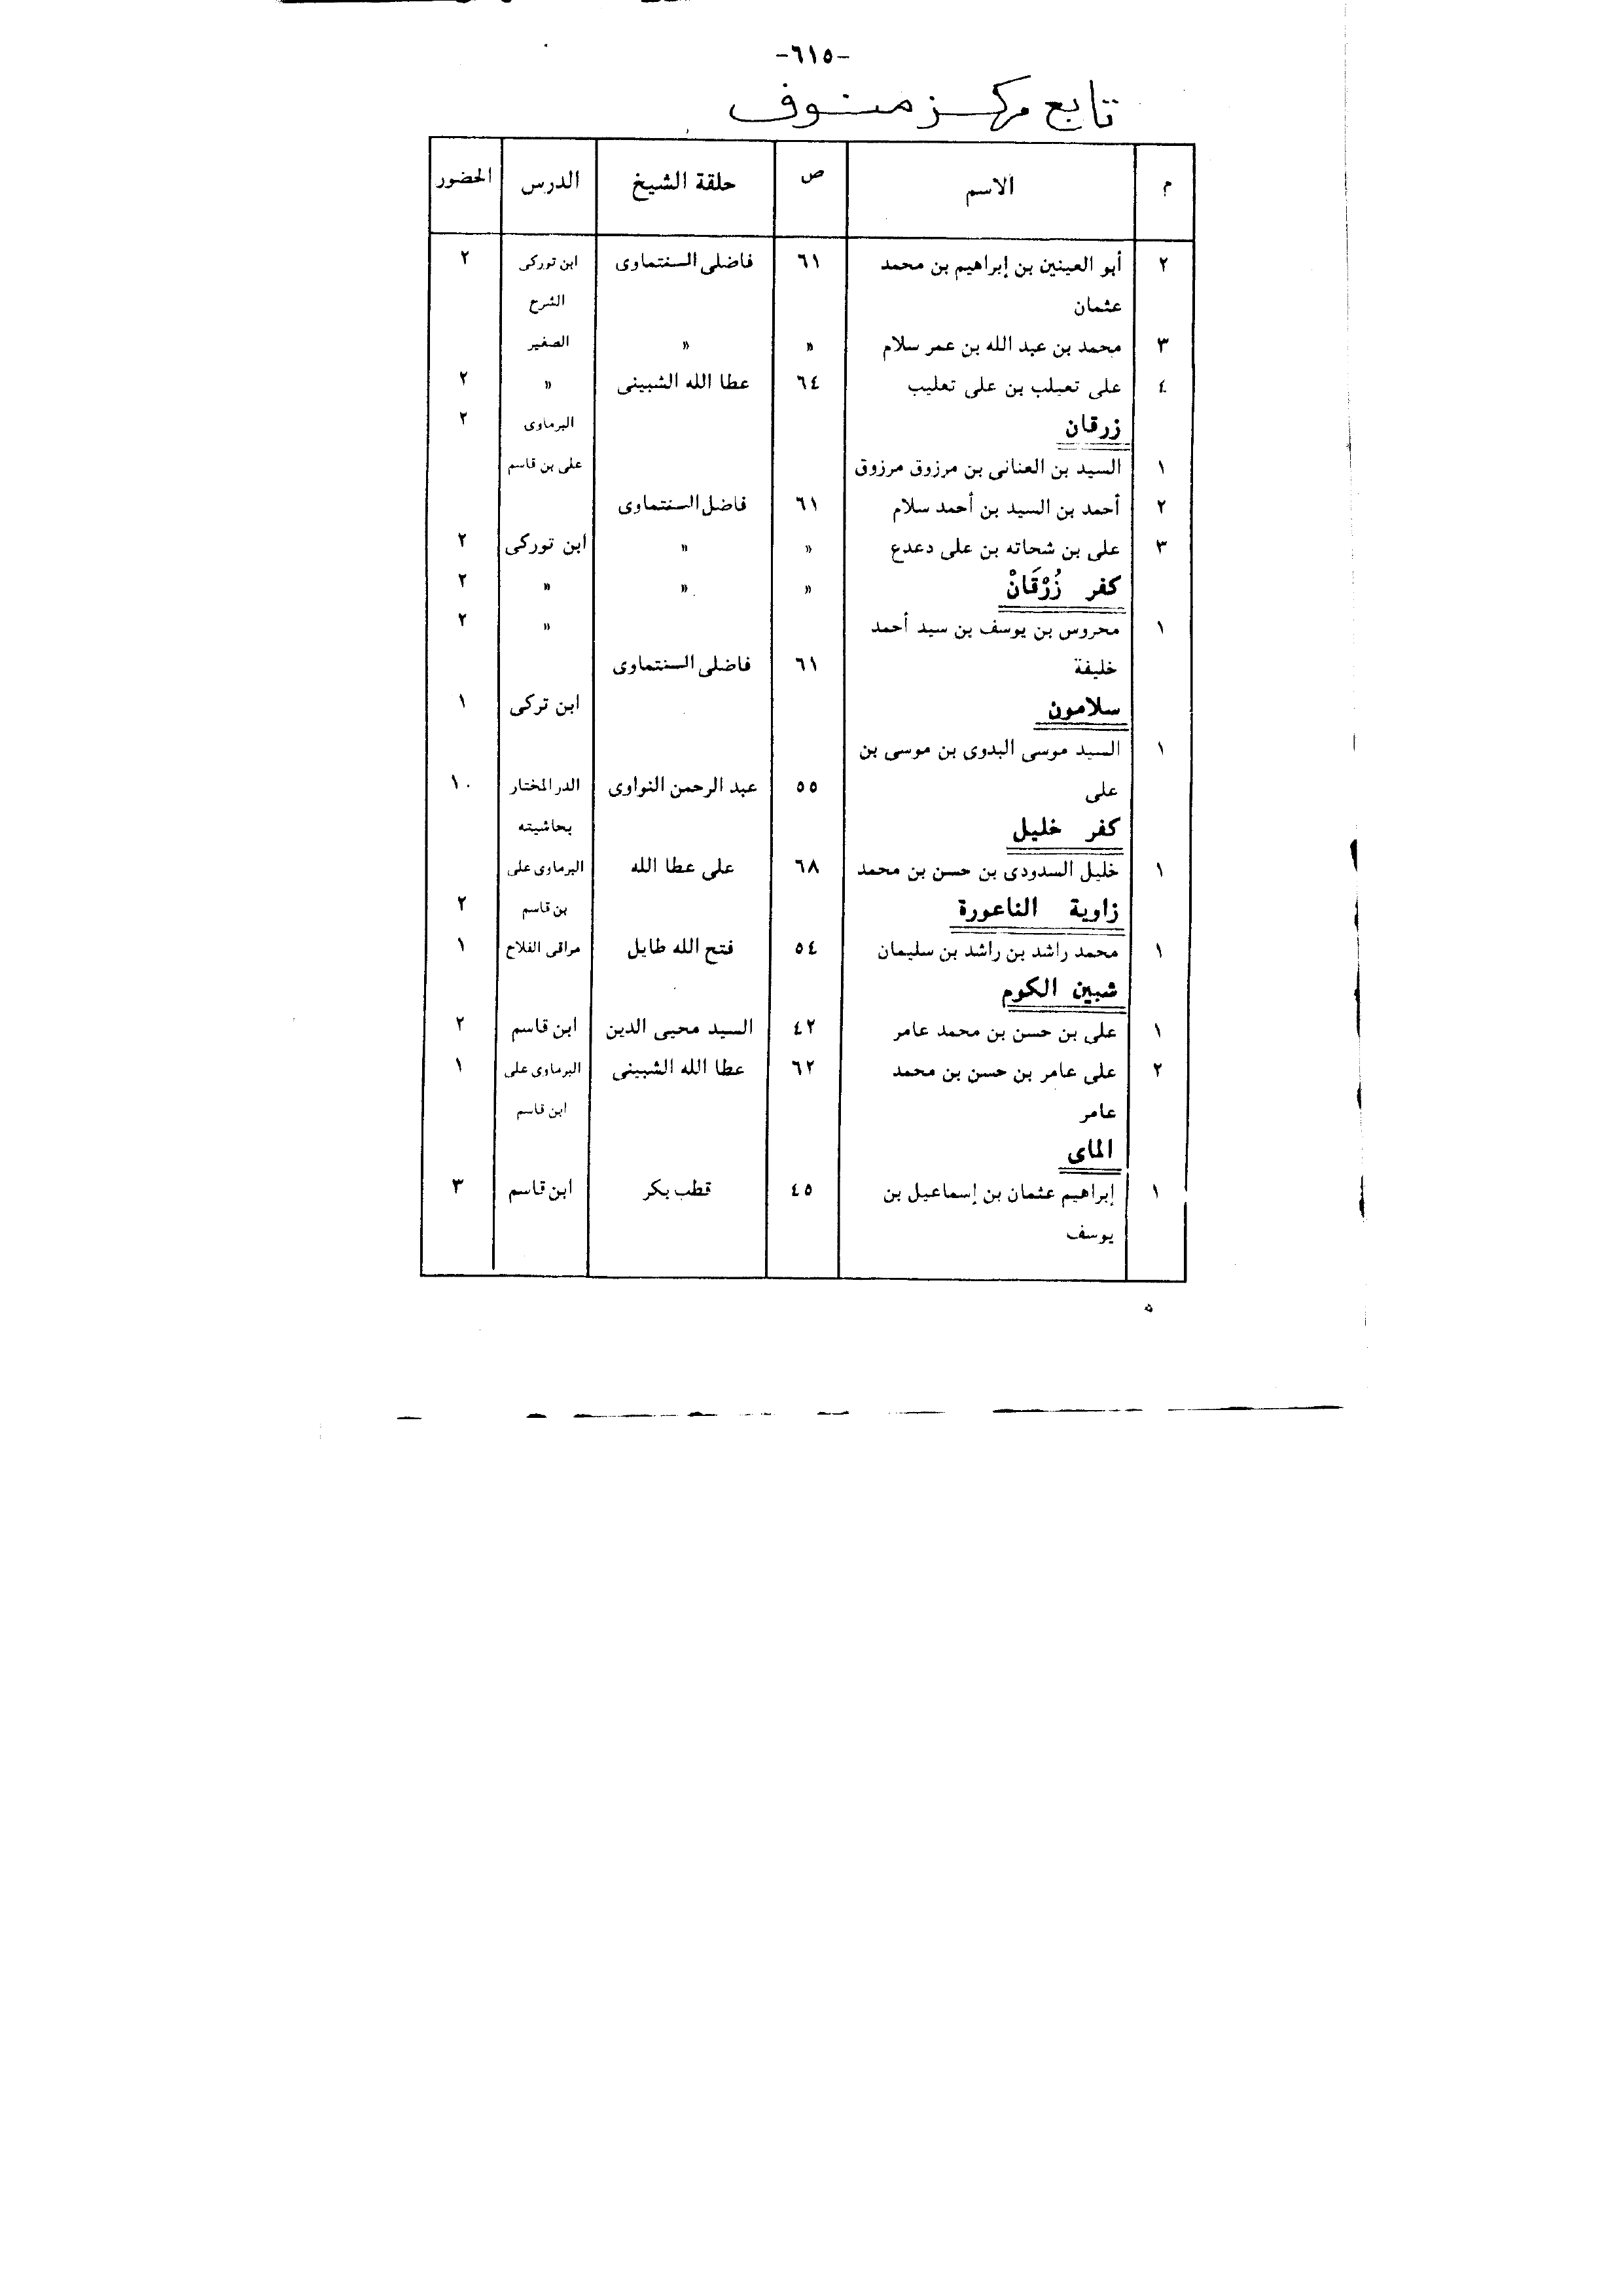 -٦١٥-
تابع مركز منوف
م الاسم ص حلقة الشيخ الدرس الحضور
٢ أبو العينين بن إبراهيم بن محمد ٦١ فاضلى السنتماوى ابن توركى ٢
عثمان الشرح
٣ محمد بن عبد الله بن عمر سلام » » الصغير
٤ على تعيلب بن على تعليب ٦٤ عطا الله الشبينى » ٢
زرقان البرماوى ٢
١ السيد بن العنانى بن مرزوق مرزوق على بن قاسم
٢ أحمد بن السيد بن أحمد سلام ٦١ فاضل السنتماوى
٣ على بن شحاته بن على دعدع » » ابن توركى ٢
كفر زُرْقَانْ » » » ٢
١ محروس بن يوسف بن سيد أحمد » ٢
خليفة ٦١ فاضلى السنتماوى
سلامون ابن تركى ١
١ السيد موسى البدوى بن موسى بن
على ٥٥ عبد الرحمن النواوى الدر المختار ١٠
كفر خليل بحاشيته
١ خليل السدودى بن حسن بن محمد ٦٨ على عطا الله البرماوى على
زاوية الناعورة بن قاسم ٢
١ محمد راشد بن راشد بن سليمان ٥٤ فتح الله طايل مراقى الفلاح ١
شبين الكوم
١ على بن حسن بن محمد عامر ٤٢ السيد محيى الدين ابن قاسم ٢
٢ على عامر بن حسن بن محمد ٦٢ عطا الله الشبينى البرماوى على ١
عامر ابن قاسم
الماى
١ إبراهيم عثمان بن إسماعيل بن ٤٥ قطب بكر ابن قاسم ٣
يوسف
٥